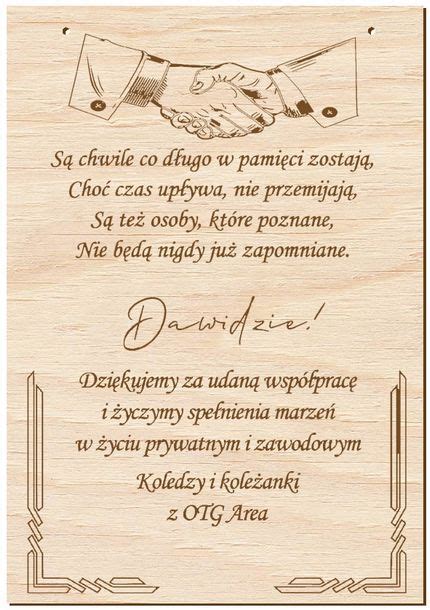 Są chwile co długo w pamięci zostają,
Choć czas upływa, nie przemijają,
Są też osoby, które poznane,
Nie będą nigdy już zapomniane.
Dawidzie!
Dziękujemy za udaną współpracę
i życzymy spełnienia marzeń
w życiu prywatnym i zawodowym
Koledzy i koleżanki
z OTG Area